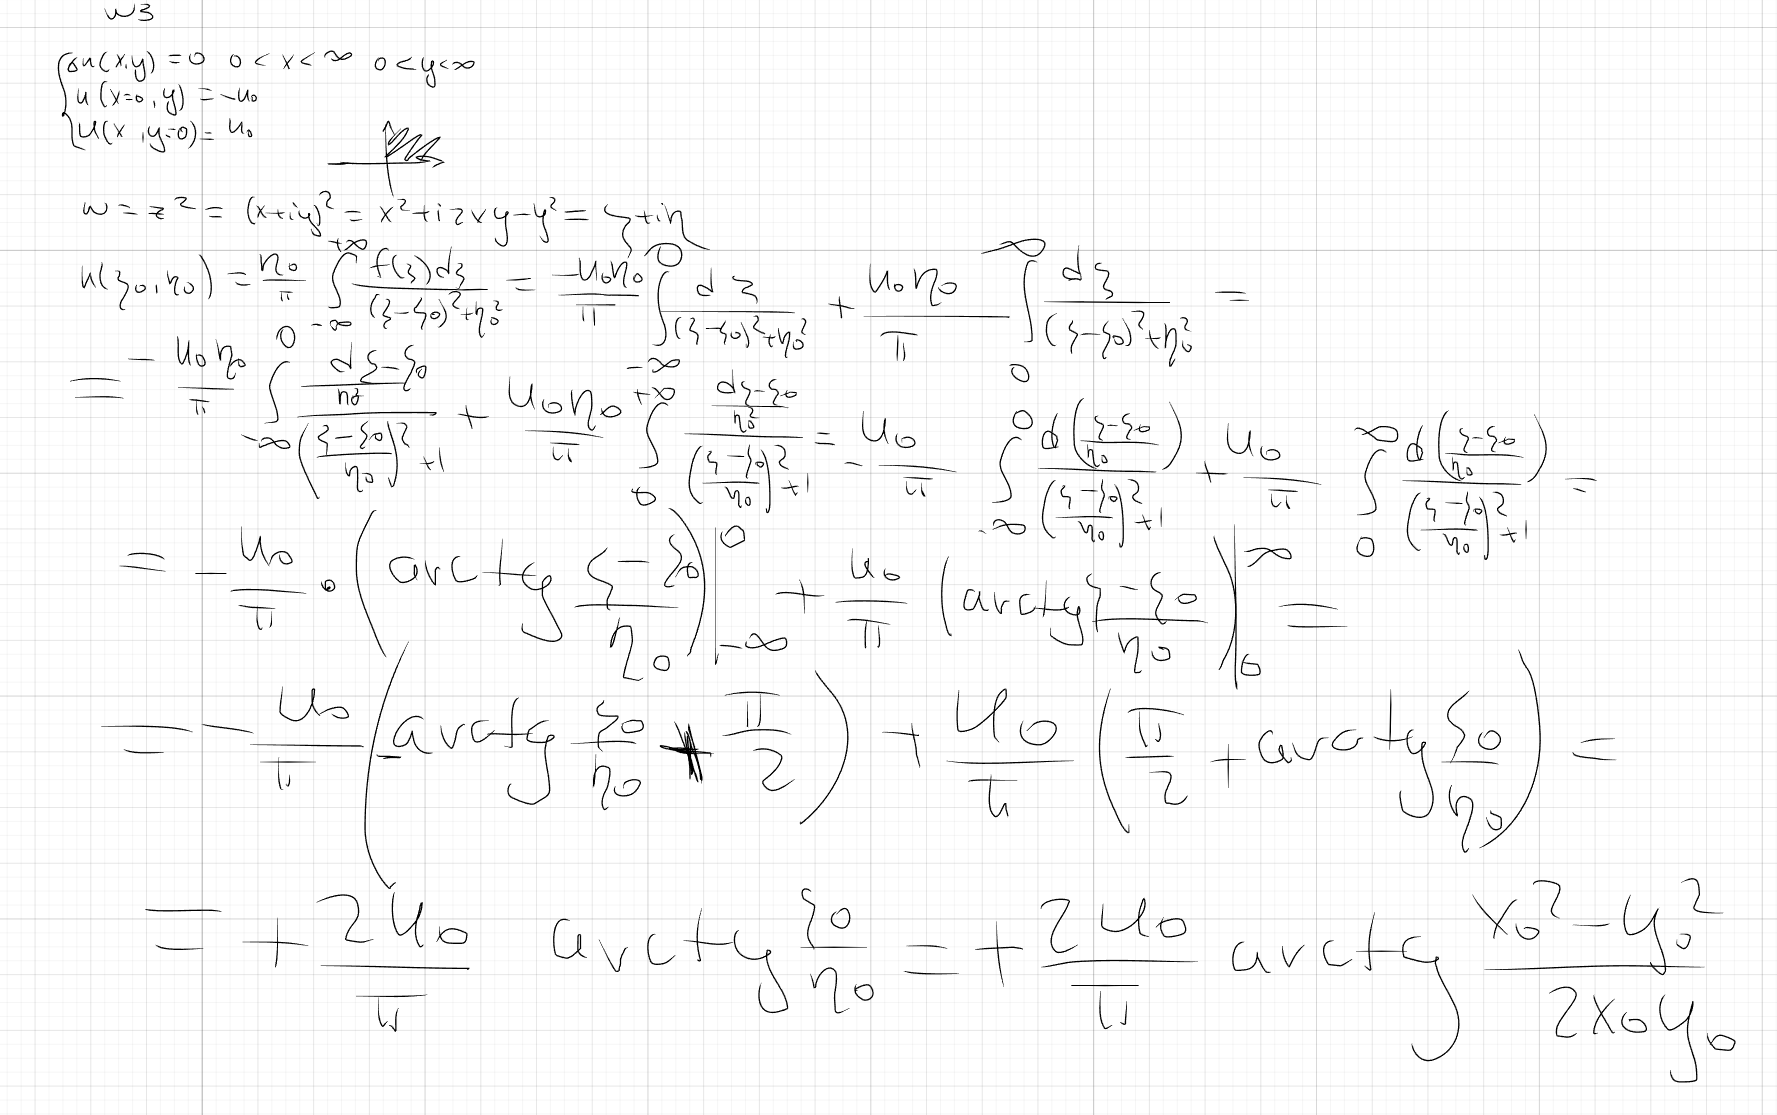 w3
{ Δu(x,y) = 0 0 < x < ∞ 0 < y < ∞
u(x=0, y) = -u₀
u(x, y=0) = u₀
w = z² = (x+iy)² = x² + i2xy - y² = ξ + iη
u(ξ₀, η₀) = η₀/π ∫_{-∞}^{+∞} f(ξ)dξ/((ξ-ξ₀)²+η₀²) = -u₀η₀/π ∫_{-∞}^{0} dξ/((ξ-ξ₀)²+η₀²) + u₀η₀/π ∫_{0}^{∞} dξ/((ξ-ξ₀)²+η₀²) =
= -u₀η₀/π ∫_{-∞}^{0} (dξ-ξ₀/η₀²)/(((ξ-ξ₀)/η₀)²+1) + u₀η₀/π ∫_{0}^{+∞} (dξ-ξ₀/η₀²)/(((ξ-ξ₀)/η₀)²+1) = -u₀/π ∫_{-∞}^{0} d((ξ-ξ₀)/η₀)/(((ξ-ξ₀)/η₀)²+1) + u₀/π ∫_{0}^{∞} d((ξ-ξ₀)/η₀)/(((ξ-ξ₀)/η₀)²+1) =
= -u₀/π · (arctg (ξ-ξ₀)/η₀)|_{-∞}^{0} + u₀/π (arctg (ξ-ξ₀)/η₀)|_{0}^{∞} =
= -u₀/π (-arctg ξ₀/η₀ + π/2) + u₀/π (π/2 + arctg ξ₀/η₀) =
= + 2u₀/π arctg ξ₀/η₀ = + 2u₀/π arctg (x₀² - y₀²)/(2x₀y₀)